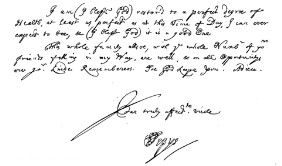 I am (I bless God) restord to a perfect degree of
Health, at least as perfect as at this time of Day, I can ever
expect to bee, & (I bless God) it is a good One.
The whole family alive, wth ye whole Numbr of yor
friends, falling in my Way, are well, & in all Opportunity
our yor Kinde Remembrances. Soe God keepe you. Adieu.
Your truly affecte uncle
SPepys